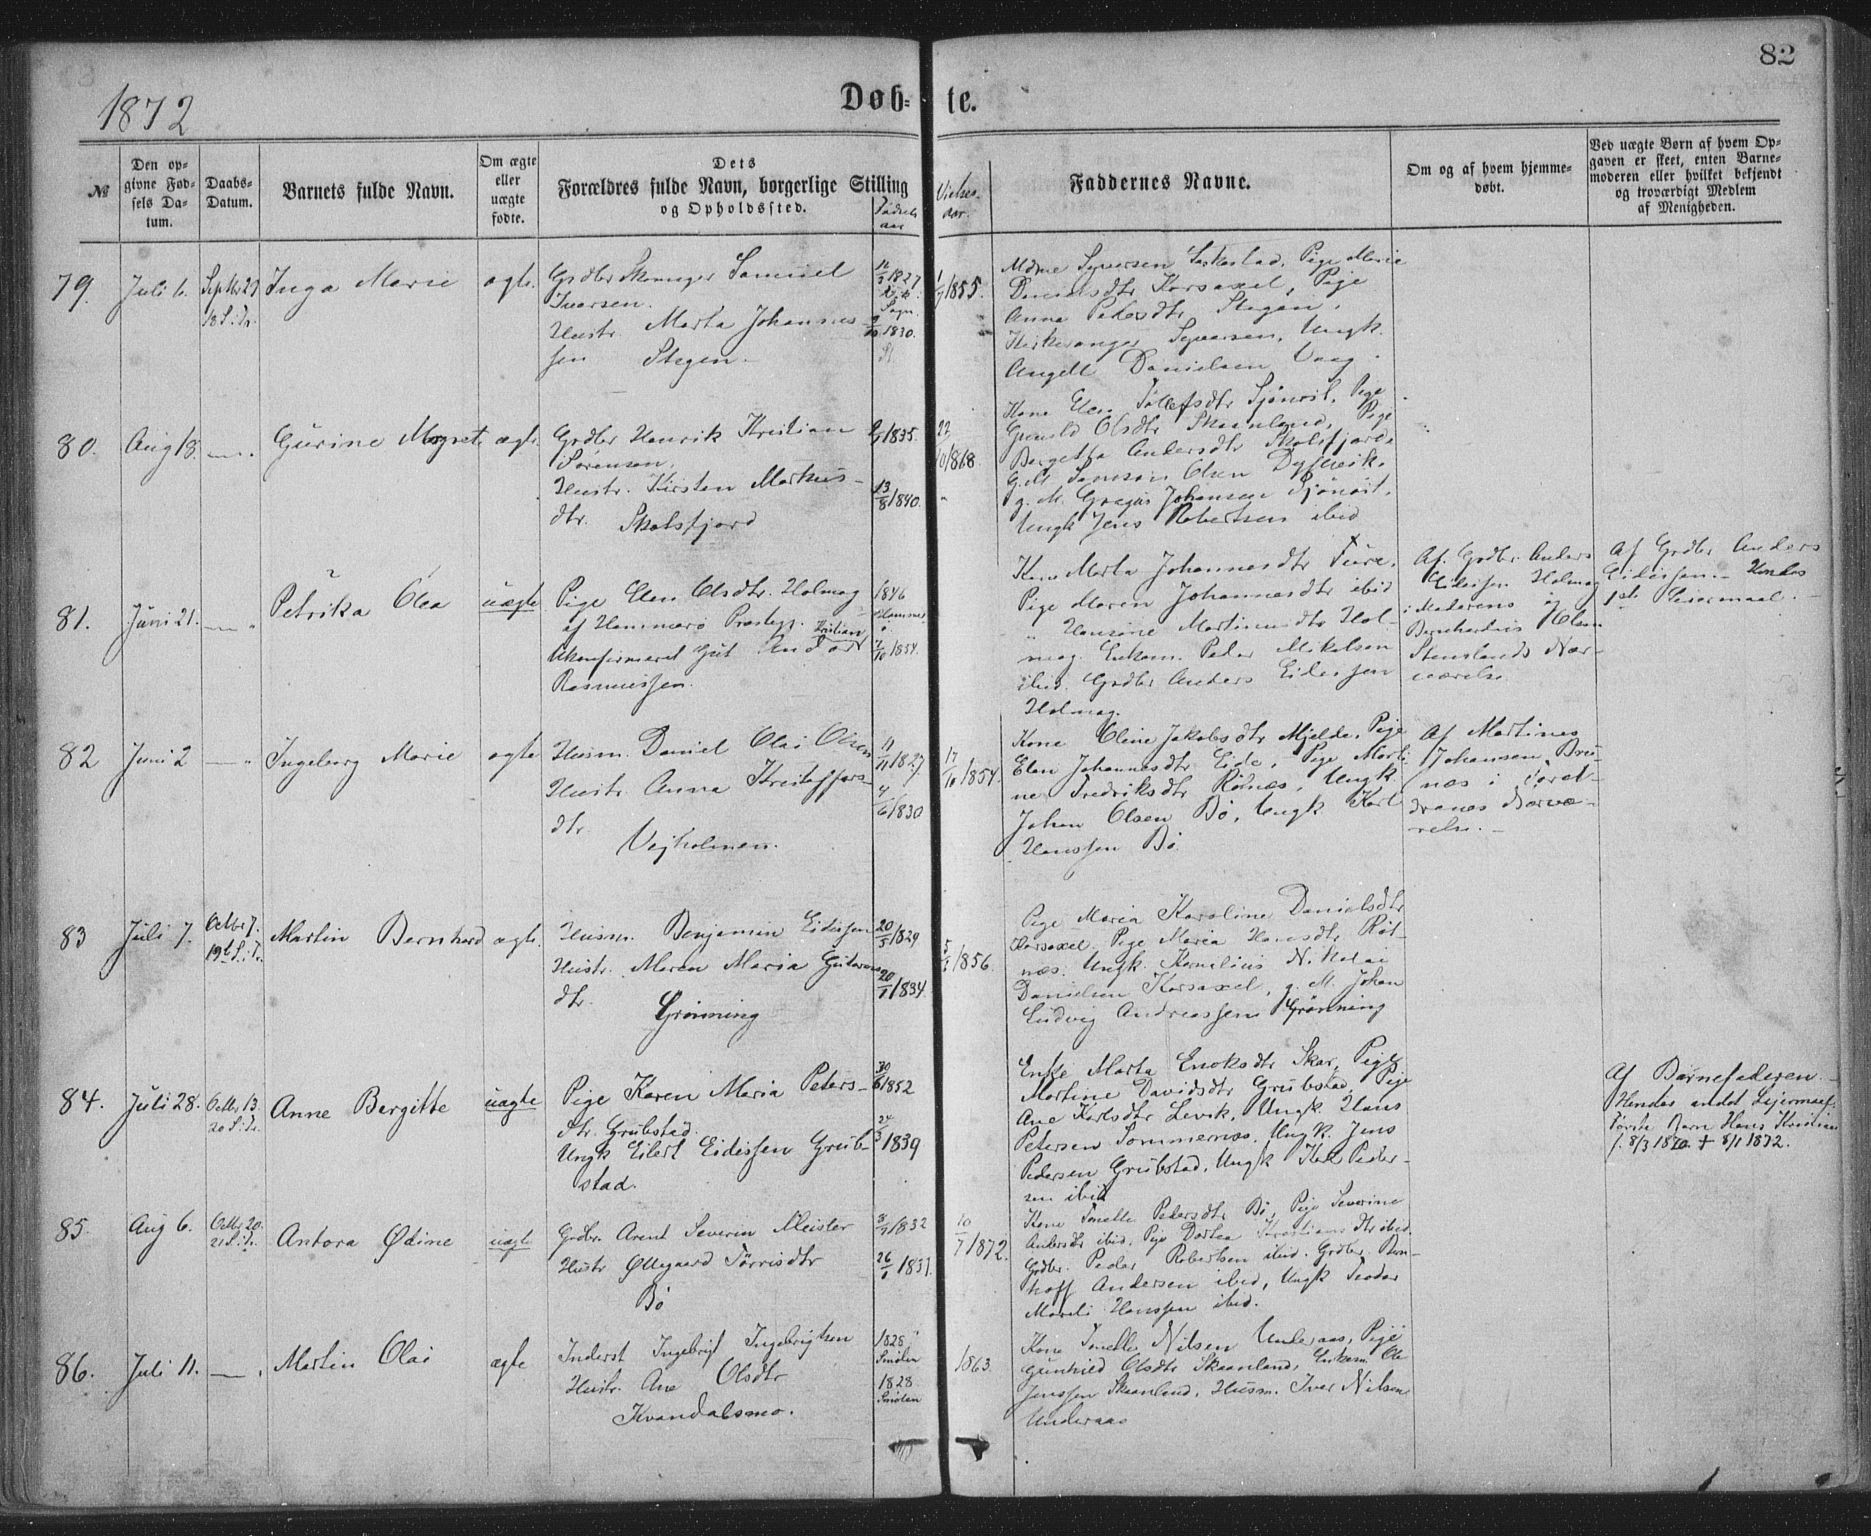 82
1872
Døb-
te.
№
Den op-
givne Fød-
sels Da-
tum.
Daabs-
Datum.
Barnets fulde Navn.
Om ægte
eller
uægte
fødte.
Dets
Forældres fulde Navn, borgerlige Stilling
og Opholdssted.
Fødsels
aar
Vielses-
aar.
Faddernes Navne.
Om og af hvem hjemme-
døbt.
Ved uægte Børn af hvem Op-
gaven er skeet, enten Barne-
moderen eller hvilket bekjendt
og troværdigt Medlem
af Menigheden.
79.
Juli 6.
Septbr 29
18 S. Tr.
Inga Marie
ægte.
Samuel
Ivarsen.
Hustr. Marta Johannes
sen Stegen.
1827
Sogn
1830.
1855.
Pige Marie
Danielsdtr Korsaxel, Pige
Anna Pedersdtr Stegen,
Syversen, Ungk.
Angell Danielsen Vaag.
80.
Aug 18.
Gurine Magret
ægte.
Grdbr Henrik Kristian
Sørensen.
Hustr. Kirsten Markus-
dtr. Skotsfjord
1835.
13/8 1840.
22/10 1868.
Kone Elen Tollefsdtr Sjønvit, Pige
Gunild Olsdtr Skaanland, Pige
Bergetta Andersdtr Skotsfjord.
G.M. Samson Olsen Dypevik.
g. M. Johansen Sjønvit.
Ungk Jens Robertsen ibid
81.
Juni 21.
Petrika Olea
uægte
Pige Elen Olsdtr. Holmag
af Hammerø Præstegj.
Kristian
Ukonfirmeret Gut Andor
Rasmussen.
1846
Hammer
ø
7/10 1854.
Kone Marta Johannesdtr Fure.
Pige Maren Johannesdtr ibid
" Hansine Martinusdtr Hol-
mag. Enkem. Peder Mikelsen
ibid. Grdbr Anders Eidissen
Holmag.
Af Grdbr. Anders
Eidissen Holmag
i Moderens og
Bernhardus Olsen
Stenslands Nær-
værelse
Af Grdbr Anders
Eidissen. - Hendes
1ste Leiermaal.
82
Juni 2
Ingeborg Marie
ægte
Husm. Daniel Olai Olsen
Hustr. Anna Kristoffers-
dtr.
Vejholmen.
11/11 1827
4/6 1830
17/10 1854
Kone Oline Jakobsdtr Mjelde, Pige
Elen Johannesdtr Eide, Pige Marti-
ne Fredriksdtr Rotnes, Ungk
Johan Olsen Bø, Ungk Karl
Hanssen Bø
Af Martines
Johansen Bru-
næs i Foræl-
dranes Nærvæ-
relse.
83
Juli 7.
Octbr 7.
19de S. Tr.
Martin Bernhard
ægte.
Husm. Benjamin Eidissen
Hustr. Maren Maria Gutorms
dtr.
Grønning
20/5 1829
20/1 1834.
1856.
Pige Maria Karoline Danielsdtr
Korsaxel. Pige Maria Hansdtr Rot-
næs. Ungk. Kornelius Nikolai
Danielsen Korsaxel, g. M. Johan
Ludvig Andreassen Grønning
84.
Juli 28.
Octbr 13.
20 S. Tr.
Anne Bergitte
uægte
Pige Karen Maria Peters-
dtr. Grubstad.
Ungk Eilert Eidissen Grub-
stad.
30/6 1852
1839
Enke Marta Enoksdtr Skar, Pige
Martine Davidsdtr Grubstad, Pige
Ane Karlsdtr Levik, Ungk Hans
Petersen Sommernes, Ungk. Jens
Pedersen Grubstad, Ungk Peder-
sen ibid
Af Barnefaderen
Hendes andet Lejermaal
Første Barn Hans Kristian
f. 8/3 1870 + 8/1 1872.
85.
Aug 6.
Octbr 20.
21 S. Tr.
Antora Ødine
uægte
Grdbr. Arent Severin Meister
Hustr Ollegaard Tørrisdtr
Bø
1832
26/1 1831.
10/7 1872.
Kone Tonette Pedersdtr Bø, Pige Severine
Andersdtr ibid, Pige Dortea Kristiansdtr ibid.
Grdbr. Peder Robertsen ibid. Grdbr. Bern-
hoff Andersen ibid, Ungk Teodor
Hanssen ibid.
86.
Juli 11.
Martin Olai
ægte
Inderst Ingebrigt Ingebrigtsen
Hustr. Ane Olsdtr
Kvandalsmo.
1828
Smølen
1828
Smølen
1863.
Kone Tonette Nilsen Underaas, Pige
Gunhild Olsdtr Skaanland, Enkem. Ole
Jenssen Skaanland, Husm. Iver Nilsen
Underaas